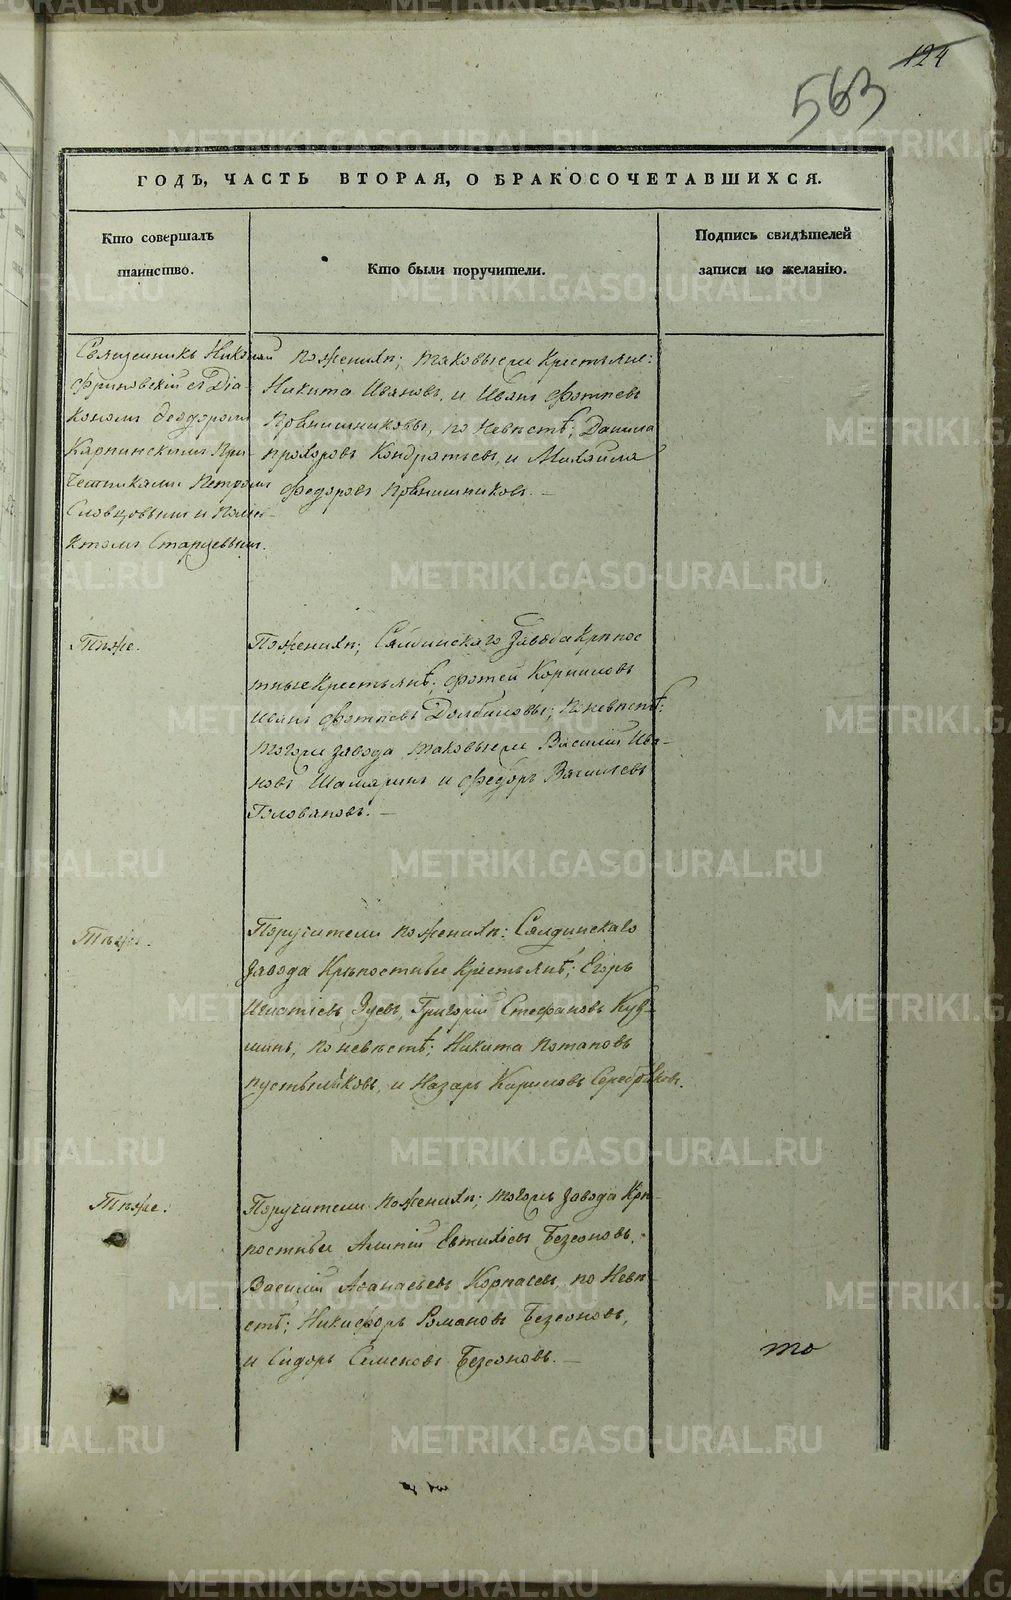 124
563
ГОДЪ, ЧАСТЬ ВТОРАЯ, О БРАКОСОЧЕТАВШИХСЯ.
Кто совершалъ
таинство.
Кто были поручители.
Подпись свидѣтелей
записи по желанію.
Священникъ Николай
Фриновскій съ Діа-
кономъ Феодоромъ
Карпинскимъ При-
четниками Петромъ
Словцовымъ и
Старцевымъ.
По женихѣ; таковыежъ Крестьяне:
Никита Ивановъ, и Иванъ Фотіевъ
по Невѣстѣ; Данила
Прохоровъ Кондратьевъ, и Михайла
Федоровъ
Тѣже.
По женихѣ; Салдинскаго Завода Крѣпос
тные Крестьянѣ; Фотей Корниловъ
Иванъ Фотіевъ По невѣстѣ:
тогожъ завода таковыежъ Василій Ива-
новъ Шамаринъ и Федоръ Василіевъ
Головановъ. —
Тѣже.
Поручители по женихѣ: Салдинскаго
Завода Крѣпостные Крестьянѣ; Егоръ
Игнатіевъ Зуевъ, Григорій Стефановъ Куз-
минъ, по невѣстѣ; Никита Потаповъ
Пустынниковъ, и Назаръ Кириловъ Серебряковъ.
Тѣже.
Поручители по женихѣ; тогожъ завода Крѣ-
постные Евтихіевъ Безсоновъ,
Василій Афанасьевъ по Невѣ-
стѣ; Никифоръ Романовъ Безсоновъ,
и Сидоръ Семеновъ Безсоновъ. —
то
METRIKI.GASO-URAL.RU